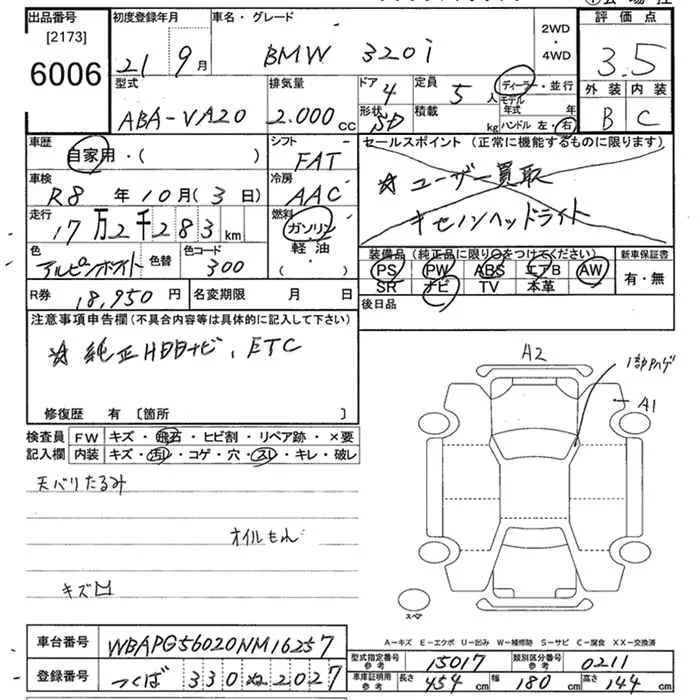 出品番号 初度登録年月 車名・グレード 評価点
[2173]
6006 21 9月 BMW 320i 2WD・4WD 3.5
型式 排気量 ドア 4 定員 5人 ディーラー・並行 外装 内装
ABA-VA20 2.000cc 形状 SD 積載 kg モデル年式 年 B C
ハンドル 左・右
車歴 自家用・( ) シフト FAT セールスポイント (正常に機能するものに限ります)
車検 R8年10月(3日) 冷房 AAC ☆ユーザー買取
走行 17万2千283km 燃料 ガソリン・軽油・( ) キセノンヘッドライト
色 アルピンホワイト 色替 色コード 300
装備品 (純正品に限り○をつけてください) 新車保証書
PS PW ABS エアB AW 有・無
SR ナビ TV 本革
R券 18,950円 名変期限 月 日 後日品
注意事項申告欄(不具合内容等は具体的に記入して下さい)
☆ 純正HDDナビ、ETC
修復歴 有 〔箇所 〕
検査員 FW キズ・飛石・ヒビ割・リペア跡・×要
記入欄 内装 キズ・汚れ・コゲ・穴・スレ・キレ・破レ
天バリたるみ
オイルもれ
キズ
A2
1部Pハゲ
A1
スペア
A-キズ E-エクボ U-凹み W-補修跡 S-サビ C-腐食 XX-交換済
車台番号 WBAPG56020NM16257
登録番号 つくば 330 ぬ 2027
型式指定番号 参考 15017 類別区分番号 参考 0211
車庫証明用 参考 長さ 454cm 幅 180cm 高さ 144cm